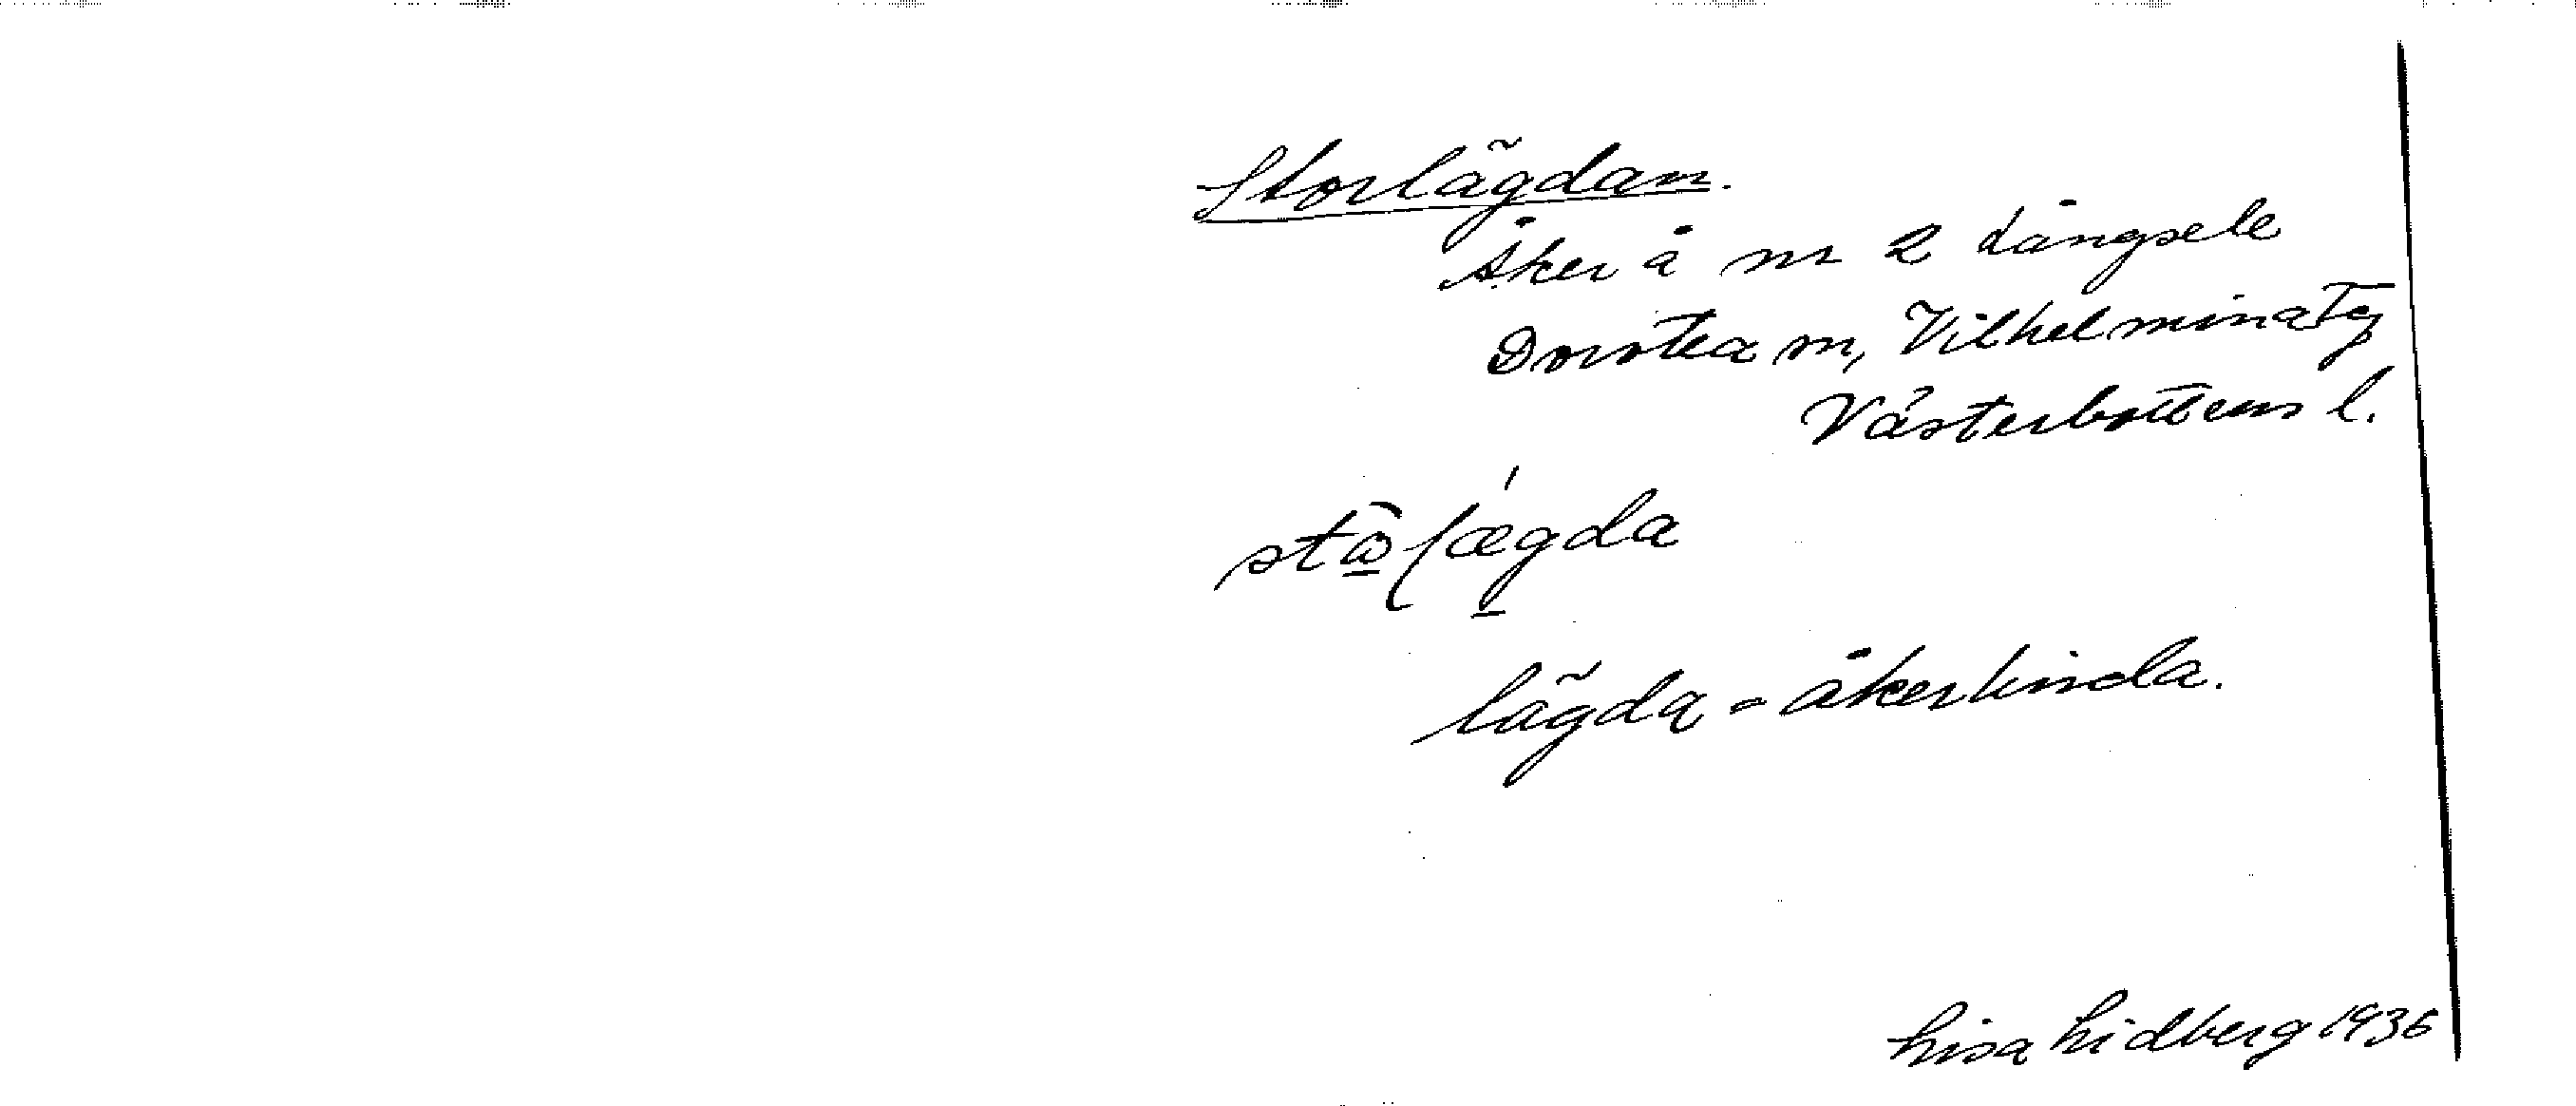 Storlägdan.
Åker å nr 2 Långsele
Dorotea sn, Vilhelmina tg
Västerbottens l.
lägda = åkerlinda.
Lisa Lidberg 1936